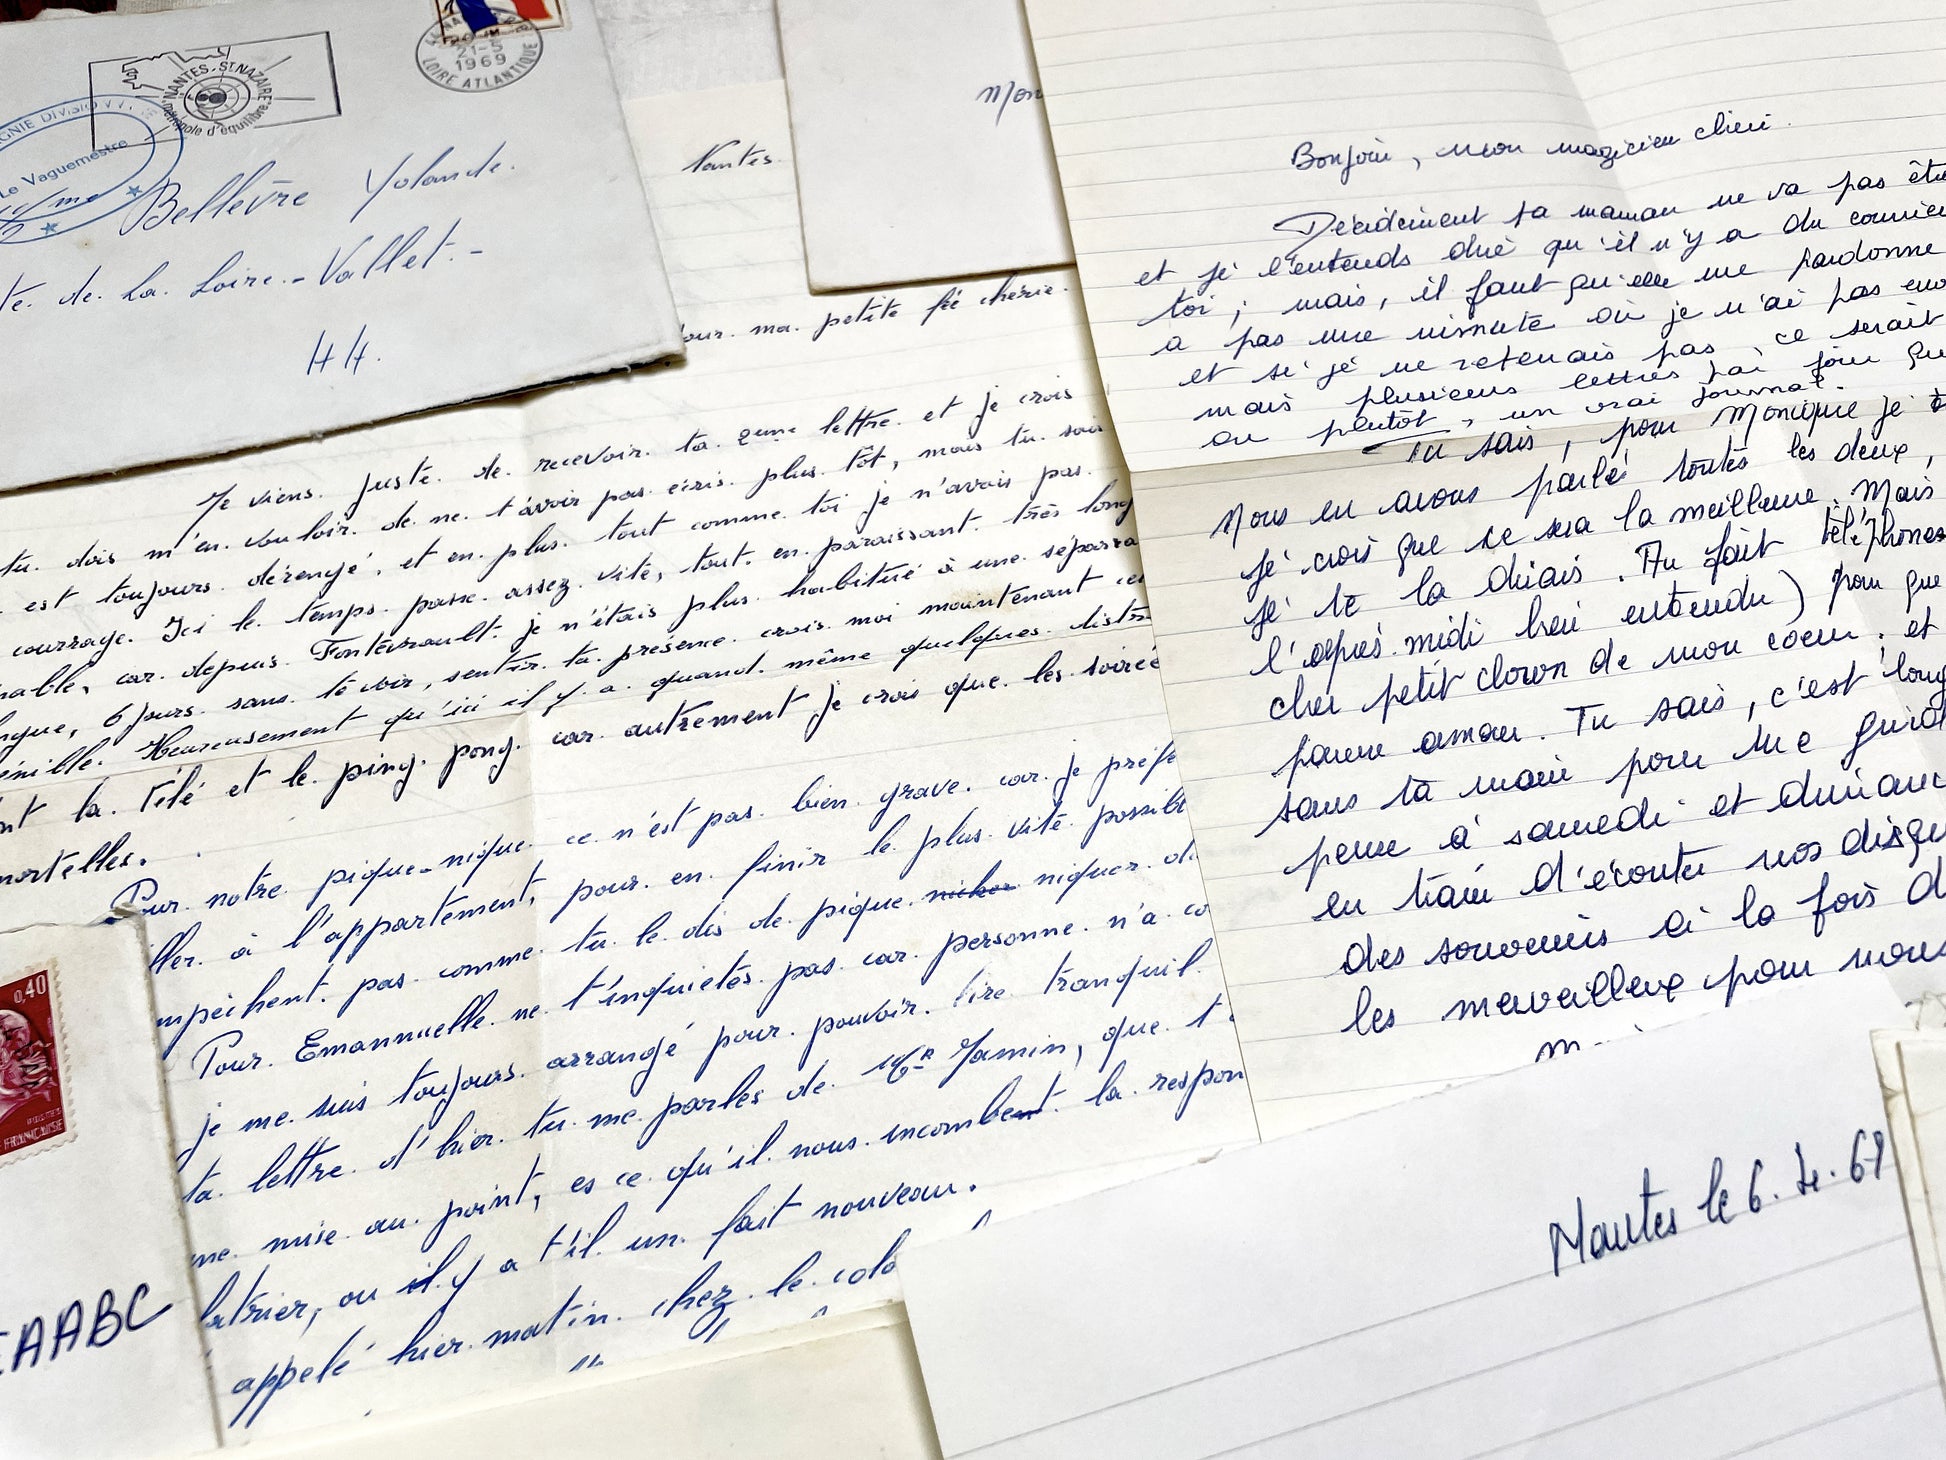 21-5
1969
LOIRE ATLANTIQUE
NANTES-ST NAZAIRE
métropole d'équilibre
Le Vaguemestre
Bellevre Yolande.
te. de. La. Loire.-Vallet.-
44.
Nantes.
Mon
our. ma. petite fée chérie.
Je viens. juste. de. recevoir. ta. 2eme lettre. et je crois
tu. dois m'en. vouloir. de. ne. t'avoir pas. écris. plus. tôt, mais tu. sais
est toujours. dérengé, et en. plus. tout comme. toi je n'avais pas.
courrage. Ici le. temps. passe. assez. vite, tout. en. paraissant. très long
nable, car. depuis. Fontevrault. je n'étais plus. habitué à une. séparra
ngue, 6 jours. sans. te voir, sentir. ta. présence. crois. moi maintenant
énible. Heureusement qu'ici il y. a. quand. même quelques. distra
nt la. télé et le. ping. pong. car autrement je crois que les soirée
mortelles.
Pour. notre. pique-nique. ce n'est pas. bien. grave. car. je préfe
ller. à l'appartement, pour. en. finir le. plus. vite. possibl
mpêchent. pas. comme. tu. le. dis de. pique. niquer. d
Pour. Emannuelle. ne. t'inquietés. pas. car. personne. n'a. co
je me. suis toujours. arrangé pour. pouvoir. lire. tranquil
ta. lettre. d'hier. tu. me. parles de. Mr Jamin, que. t
me. mise. au. point, es ce. qu'il. nous. incombent. la. respon
latrier, ou il. y a t'il. un. fait nouveau.
appelé hier. matin. chez. le. colo
" " "
0,40
FRANCAISE
EAABC
Bonjour, mon magicien chéri.
Décidément ta maman ne va pas être
et je l'entends dire qu'il n'y a du courrier
toi ; mais, il faut qu'elle me pardonne
a pas une minute où je n'ai pas env
et si je ne retenais pas, ce serait
mais plusieurs lettres par jour qu
ou plutôt, un vrai journal.
Tu sais, pour Monique je
Nous en avons parlé toutes les deux,
je crois que ce sera la meilleure. Mais
je te la dirais. Au fait téléphones
l'après-midi bien entendu) pour que
cher petit clown de mon coeur ; et
pauvre amour. Tu sais, c'est long
sans ta main pour me guid
pense à samedi et dimanc
en train d'écouter nos disqu
des souvenirs à la fois d
les merveilleux pour nous
m
Nantes le 6.4.69